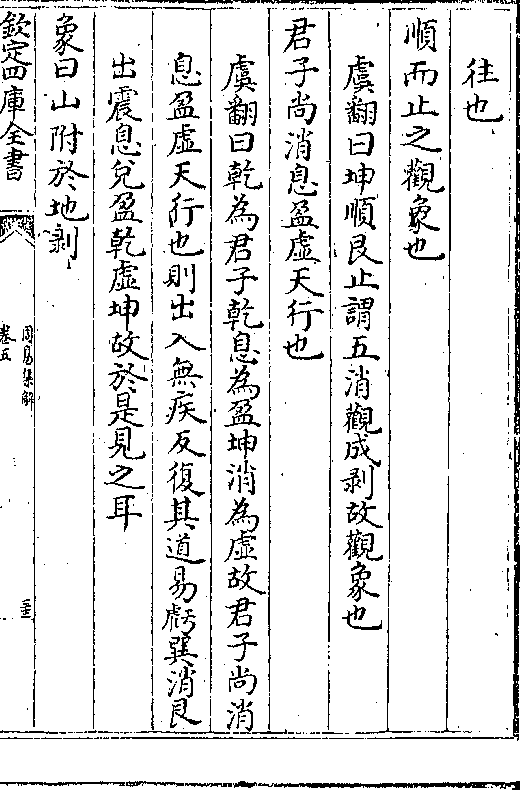 往也
順而止之觀象也
虞翻曰坤順艮止謂五消觀成剥故觀象也
君子尚消息盈虛天行也
虞翻曰乾為君子乾息為盈坤消為虛故君子尚消
息盈虛天行也則出入無疾反復其道易虧巽消艮
出震息兌盈乾虛坤故於是見之耳
象曰山附於地剥
欽定四庫全書
周易集解
卷五